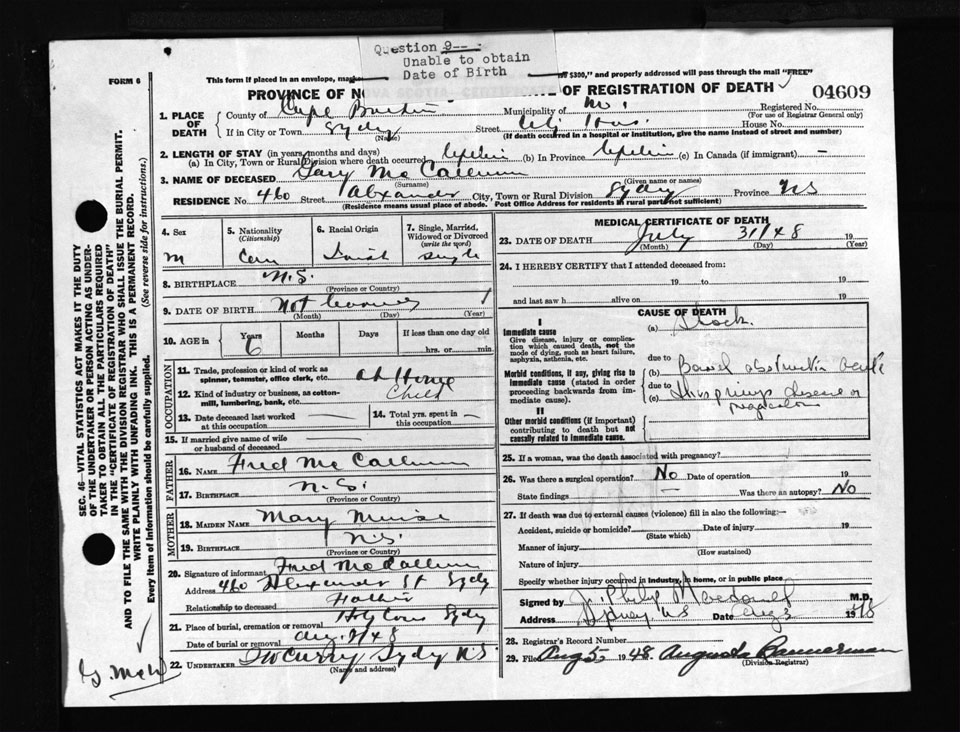 Question 9-- :
Unable to obtain
Date of Birth
FORM 6
This form if placed in an envelope, mark $300," and properly addressed will pass through the mail "FREE"
PROVINCE OF NO OF REGISTRATION OF DEATH
04609
1. PLACE OF DEATH County of Cape Breton Municipality of Registered No.
(For use of Registrar General only)
If in City or Town Sydney Street House No.
(Name) (If death occurred in a hospital or institution, give the name instead of street and number)
2. LENGTH OF STAY (in years, months and days)
(a) In City, Town or Rural Division where death occurred Life time (b) In Province Life time (c) In Canada (if immigrant) —
3. NAME OF DECEASED Gary Mc Callum
(Surname) (Given name or names)
RESIDENCE No. 460 Street Alexander City, Town or Rural Division Sydney Province NS
(Residence means usual place of abode. Post Office Address for residents in rural parts not sufficient)
4. Sex 5. Nationality (Citizenship) 6. Racial Origin 7. Single, Married, Widowed or Divorced (write the word)
m Can single
8. BIRTHPLACE N.S.
(Province or Country)
9. DATE OF BIRTH Not
(Month) (Day) (Year)
10. AGE in Years Months Days If less than one day old
6 hrs. or min.
OCCUPATION
11. Trade, profession or kind of work as spinner, teamster, office clerk, etc. at Home
12. Kind of industry or business, as cotton-mill, lumbering, bank, etc. Child
13. Date deceased last worked at this occupation —
14. Total yrs. spent in this occupation —
15. If married give name of wife or husband of deceased —
FATHER
16. NAME Fred Mc Callum
17. BIRTHPLACE N.S.
(Province or Country)
MOTHER
18. MAIDEN NAME Mary
19. BIRTHPLACE N.S.
(Province or Country)
20. Signature of informant Fred McCallum
Address 460 Alexander St Sydney
Relationship to deceased Father
21. Place of burial, cremation or removal Holy Cross Sydney
Date of burial or removal Aug 2/48
22. UNDERTAKER T W Curry Sydney N.S.
(Name and address)
MEDICAL CERTIFICATE OF DEATH
23. DATE OF DEATH July 31/48 19
(Month) (Day) (Year)
24. I HEREBY CERTIFY that I attended deceased from:
19 to 19
and last saw h alive on 19
CAUSE OF DEATH
I
Immediate cause
Give disease, injury or complication which caused death, not the mode of dying, such as heart failure, asphyxia, asthenia, etc.
(a) Shock.
Morbid conditions, if any, giving rise to immediate cause (stated in order proceeding backwards from immediate cause).
due to (b) Bowel obstruction acute
due to (c) Hirschsprung's disease or
II
Other morbid conditions (if important) contributing to death but not causally related to immediate cause.
25. If a woman, was the death associated with pregnancy?
26. Was there a surgical operation? No Date of operation 19
State findings — Was there an autopsy? No
27. If death was due to external causes (violence) fill in also the following:—
Accident, suicide or homicide? Date of injury 19
(State which)
Manner of injury
(How sustained)
Nature of injury
Specify whether injury occurred in industry, in home, or in public place
Signed by J. Philip Macdonald M.D.
Address Sydney NS Date Aug 3 1948
28. Registrar's Record Number
29. Filed Aug 5 1948. Augusta Bannerman
(Division Registrar)
SEC. 46—VITAL STATISTICS ACT MAKES IT THE DUTY
OF THE UNDERTAKER OR PERSON ACTING AS UNDER-
TAKER TO OBTAIN ALL THE PARTICULARS REQUIRED
IN THE "CERTIFICATE OF REGISTRATION OF DEATH"
AND TO FILE THE SAME WITH THE DIVISION REGISTRAR WHO SHALL ISSUE THE BURIAL PERMIT.
WRITE PLAINLY WITH UNFADING INK. THIS IS A PERMANENT RECORD.
Every item of Information should be carefully supplied. (See reverse side for instructions.)